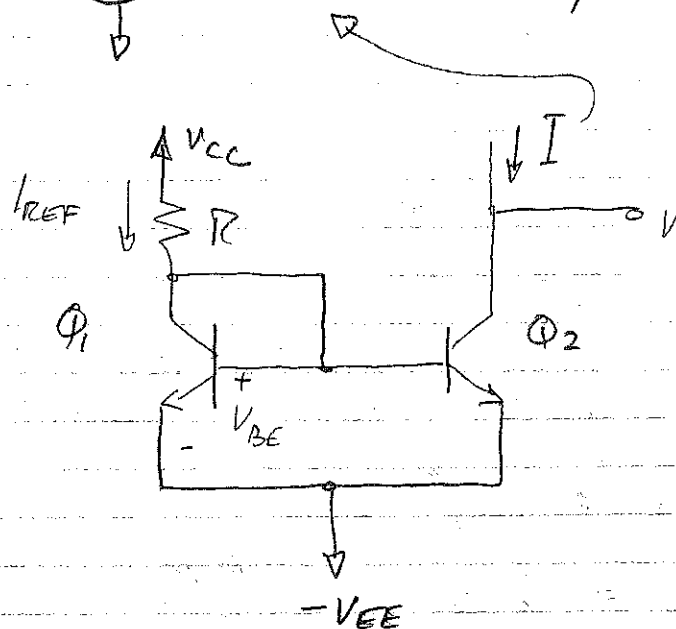 V_CC
I
I_REF
R
V
Q_1
Q_2
+
V_BE
-
-V_EE